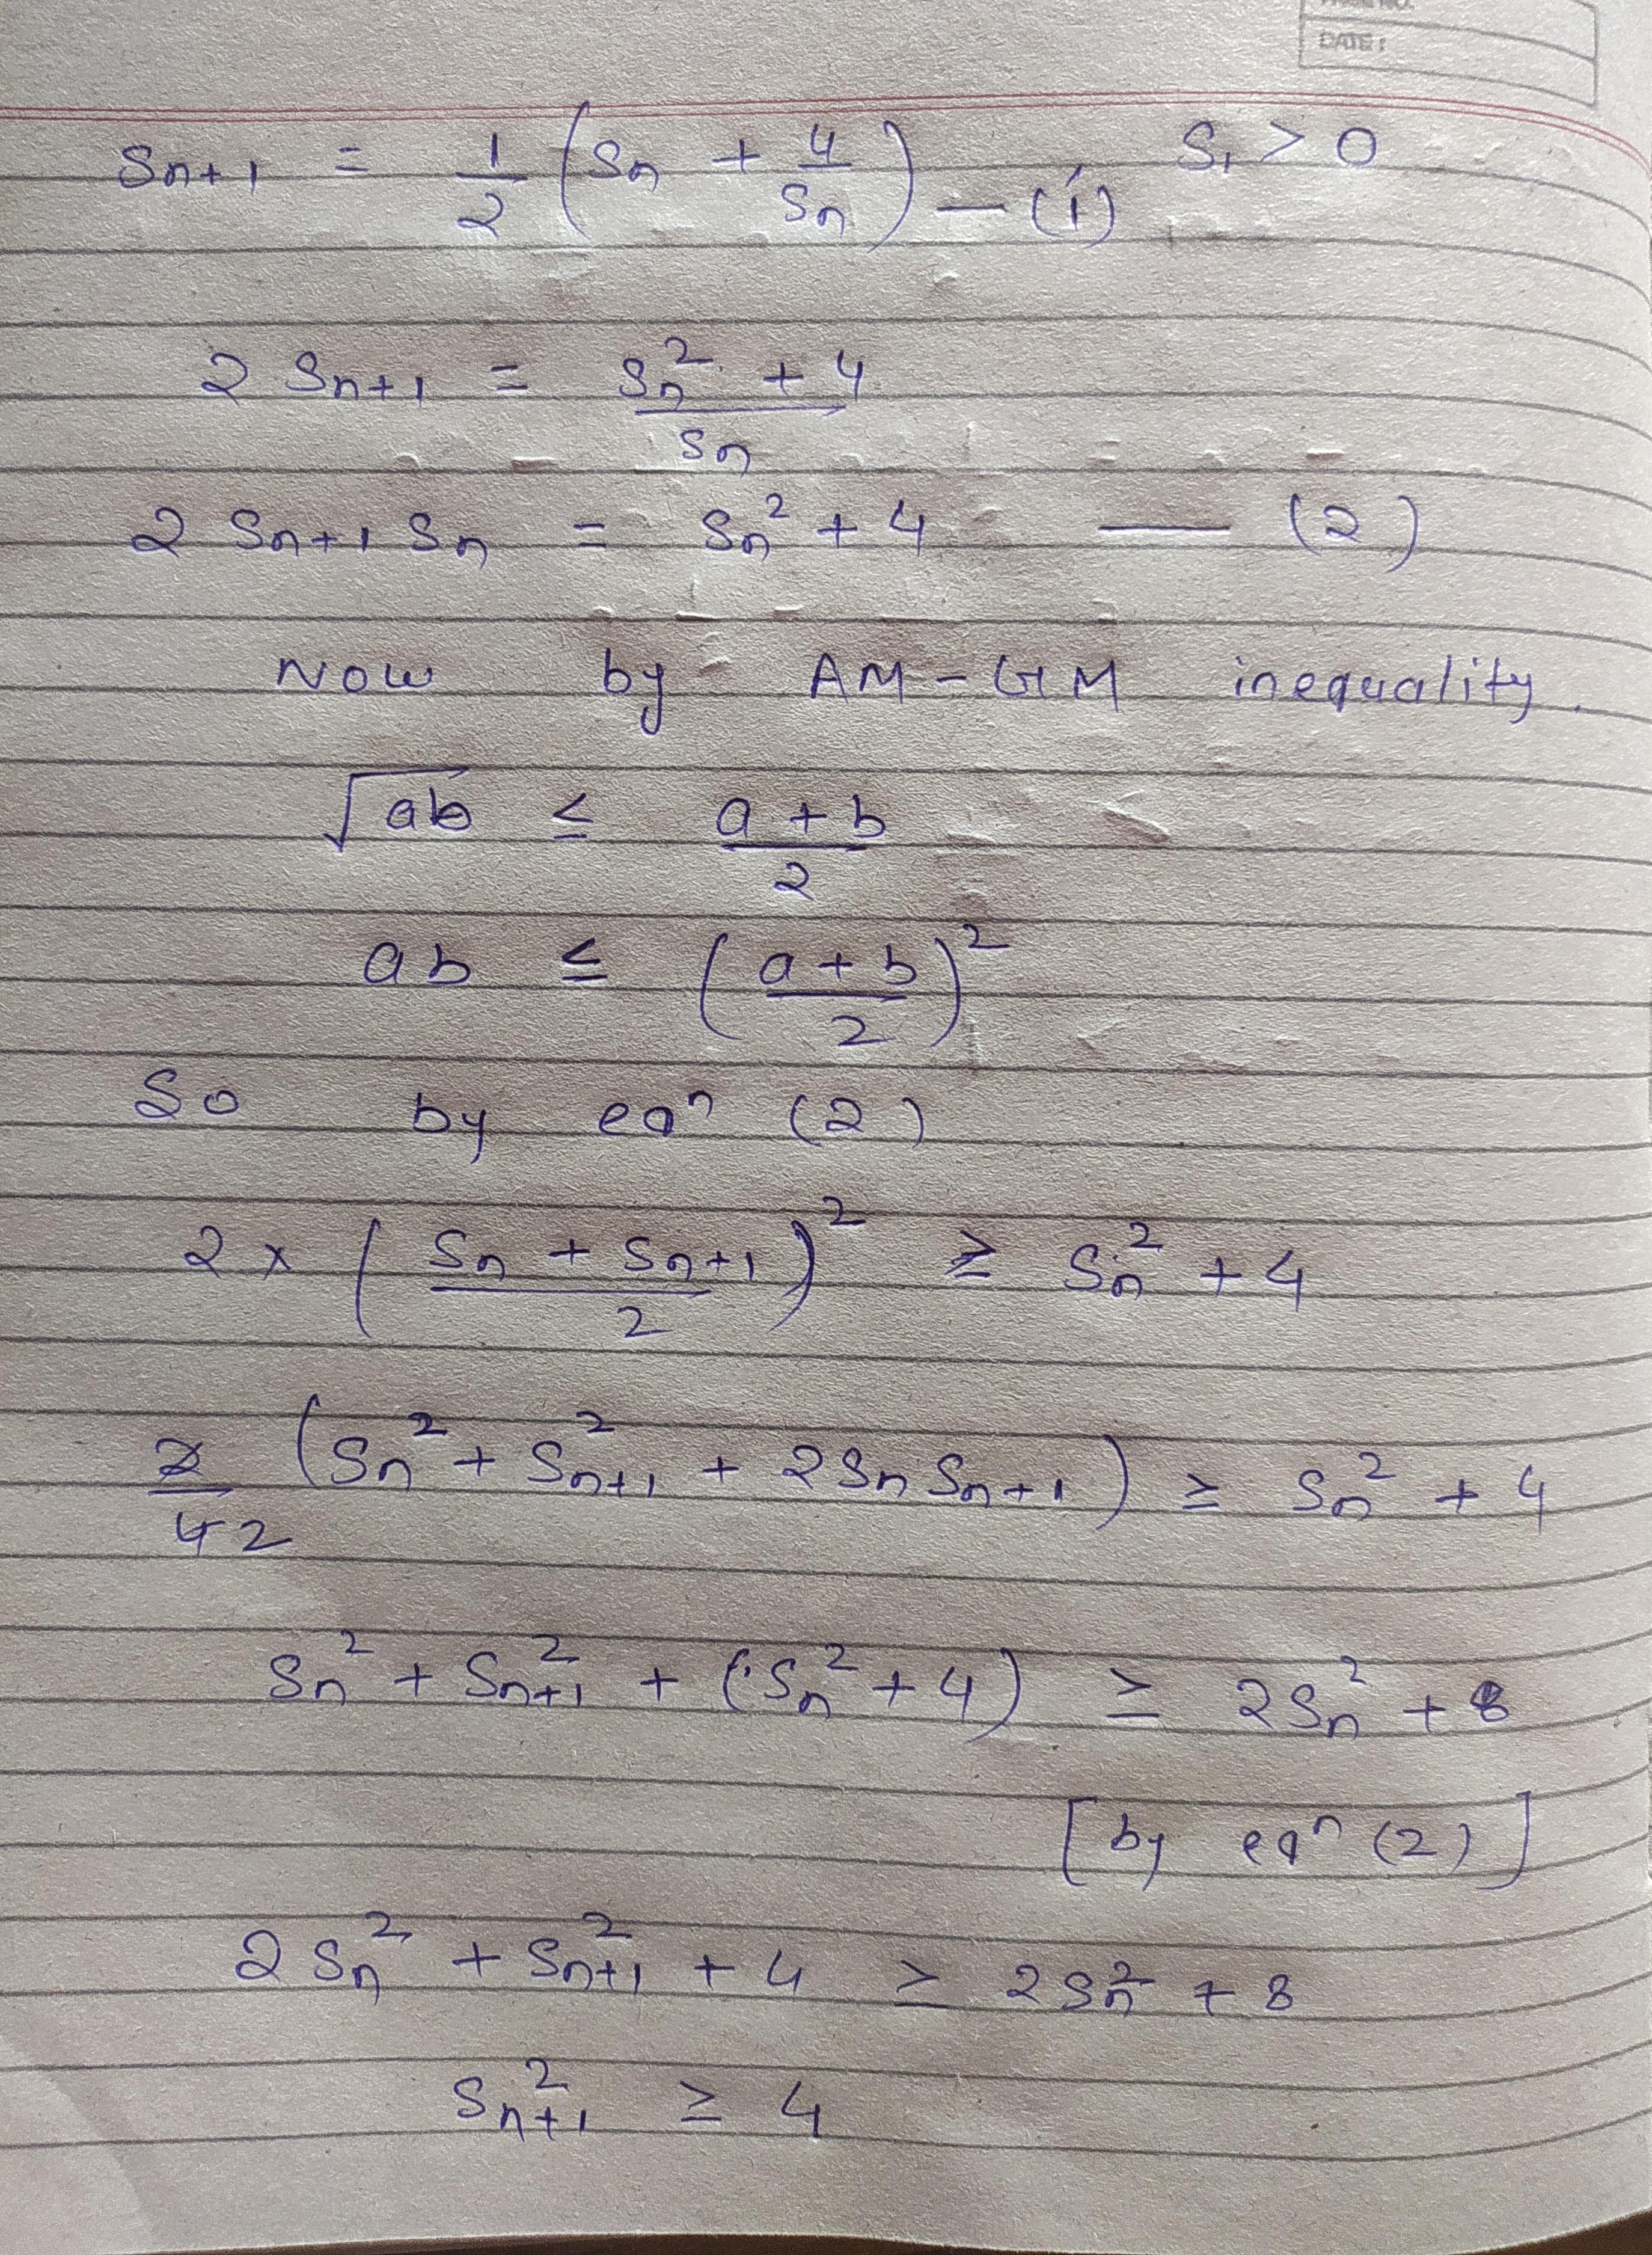 DATE:
Sn+1 = 1/2 (Sn + 4/Sn) — (1) S1 > 0
2 Sn+1 = (Sn² + 4)/Sn
2 Sn+1 Sn = Sn² + 4 — (2)
Now by AM-GM inequality.
√ab ≤ (a + b)/2
ab ≤ ((a + b)/2)²
So by eqⁿ (2)
2 × ((Sn + Sn+1)/2)² ≥ Sn² + 4
2/4 2 (Sn² + Sn+1² + 2Sn Sn+1) ≥ Sn² + 4
Sn² + Sn+1² + (Sn² + 4) ≥ 2Sn² + 8
[by eqⁿ (2)]
2 Sn² + Sn+1² + 4 ≥ 2Sn² + 8
Sn+1² ≥ 4